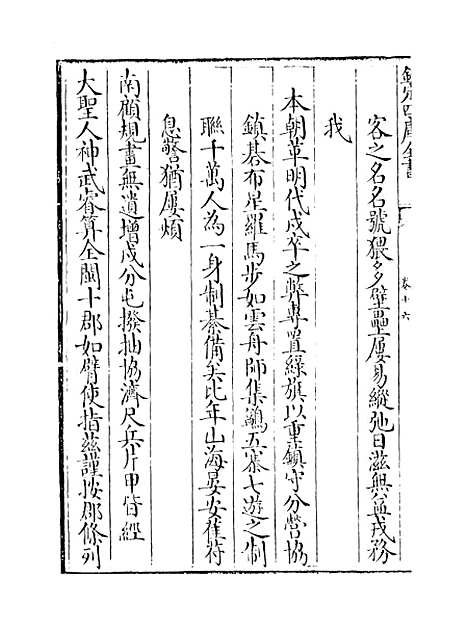 欽定四庫全書
卷十六
客之名名號猥多壁壘屢易縱弛日滋無益戎務
我
本朝革明代戍卒之弊專置綠旗以重鎮守分營協
鎮碁布星羅馬步如雲舟師集鷁五寨七遊之制
聯十萬人為一身制綦備矣比年山海晏安萑苻
息警猶屢煩
南顧規畫無遺增戍分屯撥抽協濟尺兵片甲皆經
大聖人神武睿算全閩十郡如臂使指茲謹按郡條列